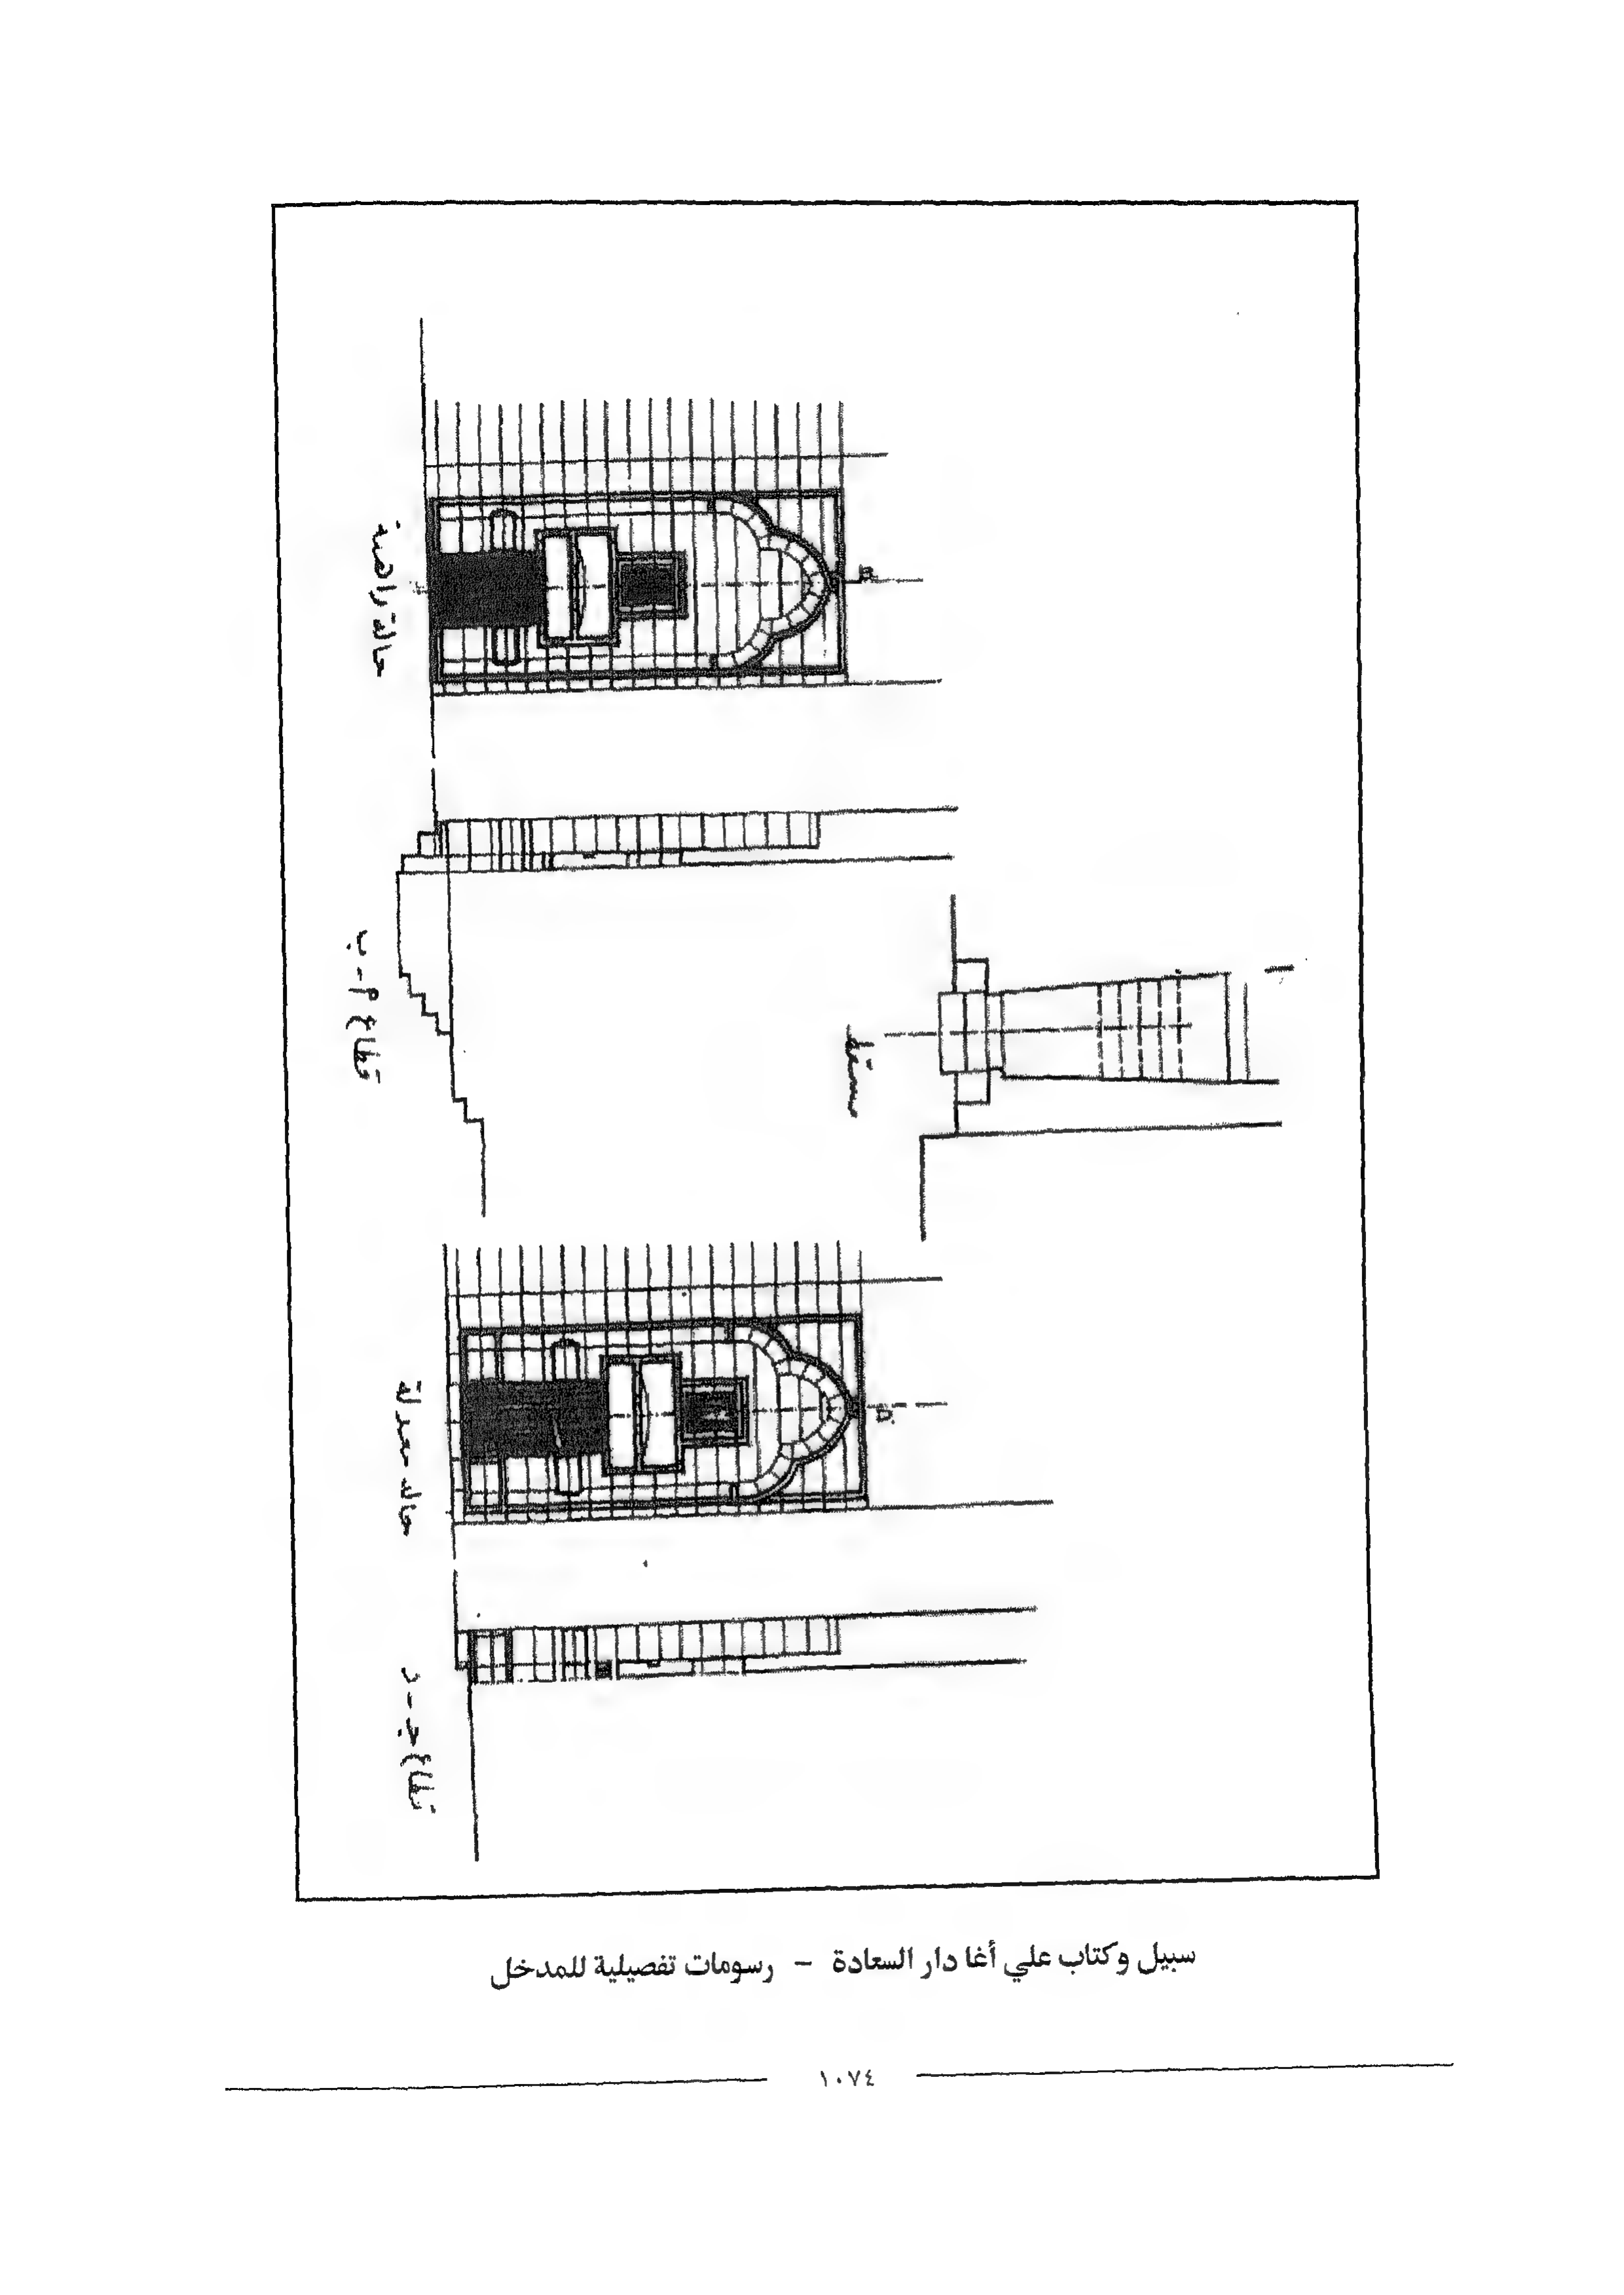 حالة راهنة
قطاع أ - ب
مسقط
حاله معدلة
قطاع جـ - د
سبيل وكتاب علي أغا دار السعادة - رسومات تفصيلية للمدخل
١٠٧٤